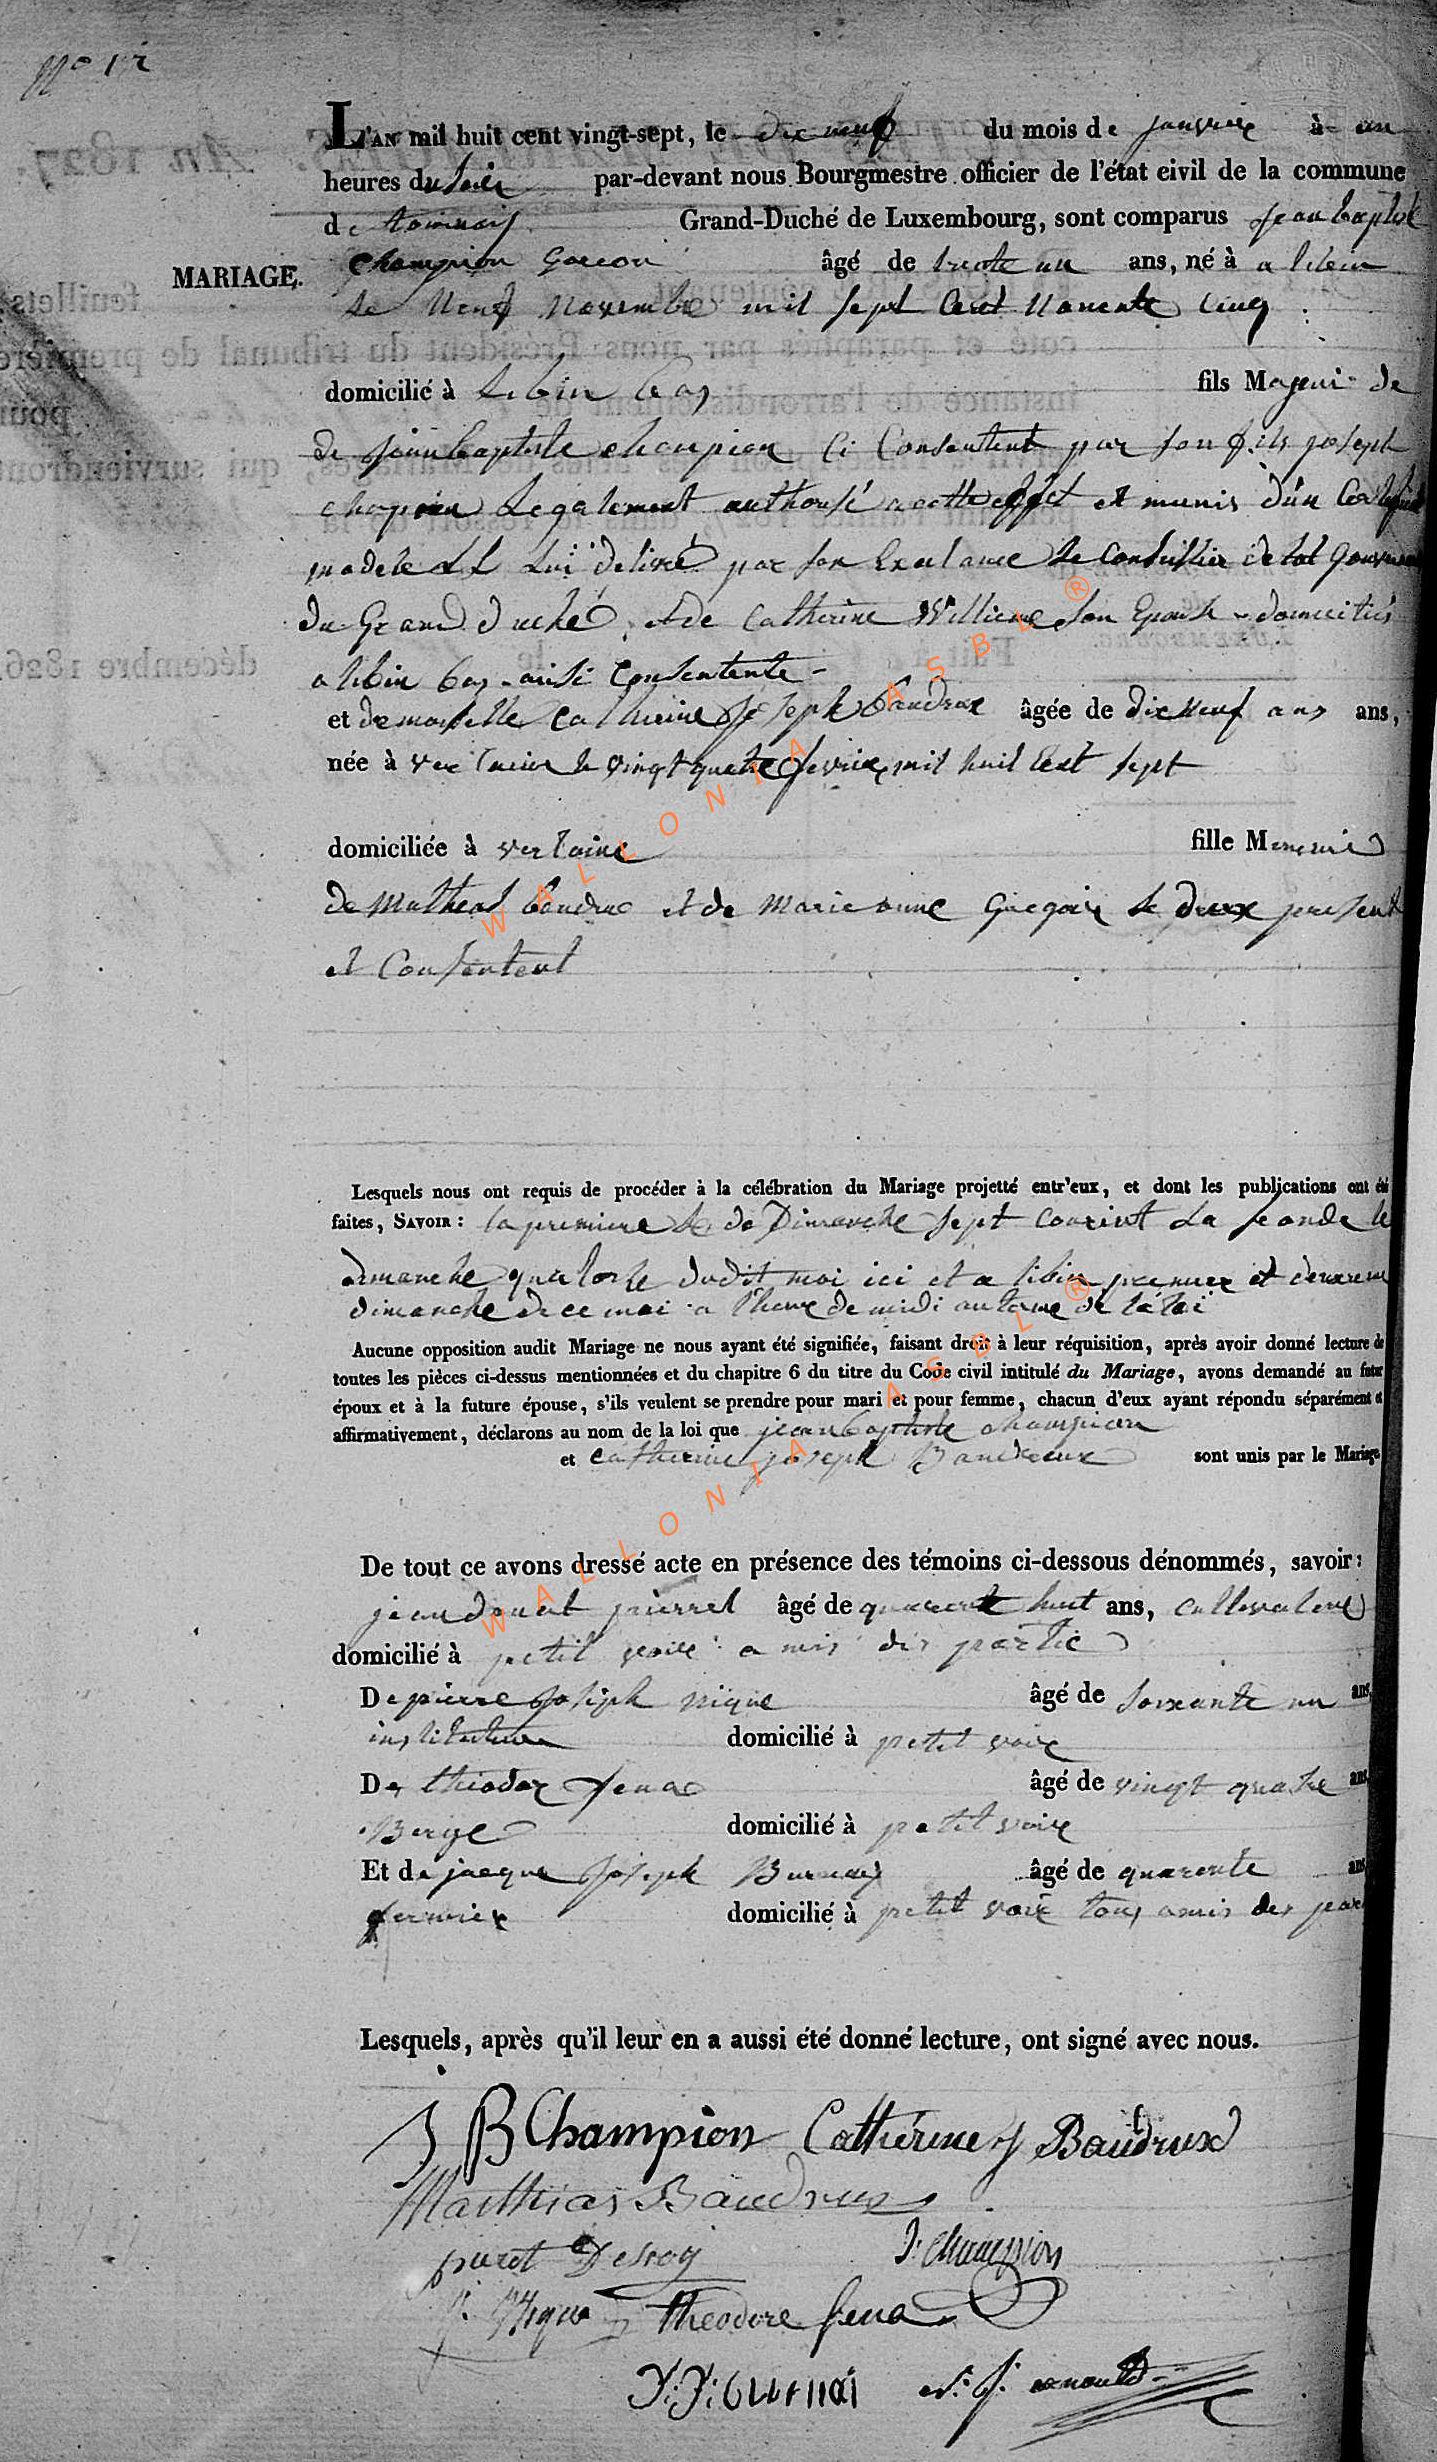 N° 12
L'AN mil huit cent vingt-sept, le dix neuf du mois de janvier à un
heures du soir par-devant nous Bourgmestre officier de l'état civil de la commune
de Grand-Duché de Luxembourg, sont comparus jean baptiste
MARIAGE.
champion Garcon âgé de trente un ans, né à a libin
le Neuf Novembre mil sept Cent Nonente Cinq
domicilié à Libin bas fils Majeur de
de jean baptiste champion Ci Consentent par son fils joseph
chapion Legalement authorisé a cette effet et munis d'un
modele LL Lui delivré par son Exelance le Conseillier detat Gouverneur
du Grand duché, et de Catherine Williame son Epouse domicilies
a libin bas aussi Consentente
et demoiselle Catherine Joseph baudrux âgée de dix Neuf ans ans,
née à le vingt quatre fevrier mil huit Cent sept
domiciliée à verlaine fille Mineure
de Mathias baudrux et de Marie anne Gregoire le deux present
et Consentent
Lesquels nous ont requis de procéder à la célébration du Mariage projetté entr'eux, et dont les publications ont été
faites, SAVOIR : la premiere le de Dimanche sept courint La seconde le
dimanche quatorse dudit moi ici et a libin premier et deuxieme
dimanche de ce moi a l'heure de midi au terme de la loi
Aucune opposition audit Mariage ne nous ayant été signifiée, faisant droit à leur réquisition, après avoir donné lecture de
toutes les pièces ci-dessus mentionnées et du chapitre 6 du titre du Code civil intitulé du Mariage, avons demandé au futur
époux et à la future épouse, s'ils veulent se prendre pour mari et pour femme, chacun d'eux ayant répondu séparément et
affirmativement, déclarons au nom de la loi que jean baptiste champion
et catherine joseph Baudreux sont unis par le Mariage
De tout ce avons dressé acte en présence des témoins ci-dessous dénommés, savoir :
jean donat pierret âgé de quarente huit ans, cultivateur
domicilié à petit voire amis dis partie
De pierre Joseph nique âgé de soixante un ans
instituteur domicilié à petit voir
De théodor fena âgé de vingt quatre ans
Berge domicilié à petit voire
Et de jacque Joseph Burnay âgé de quarente ans
fermier domicilié à petit voir tous amis des
Lesquels, après qu'il leur en a aussi été donné lecture, ont signé avec nous.
J B Champion Cathérine j Baudrux
Matthias Baudrux
J: Champion
theodore fena
WALLONIA ASBL ®
WALLONIA ASBL ®